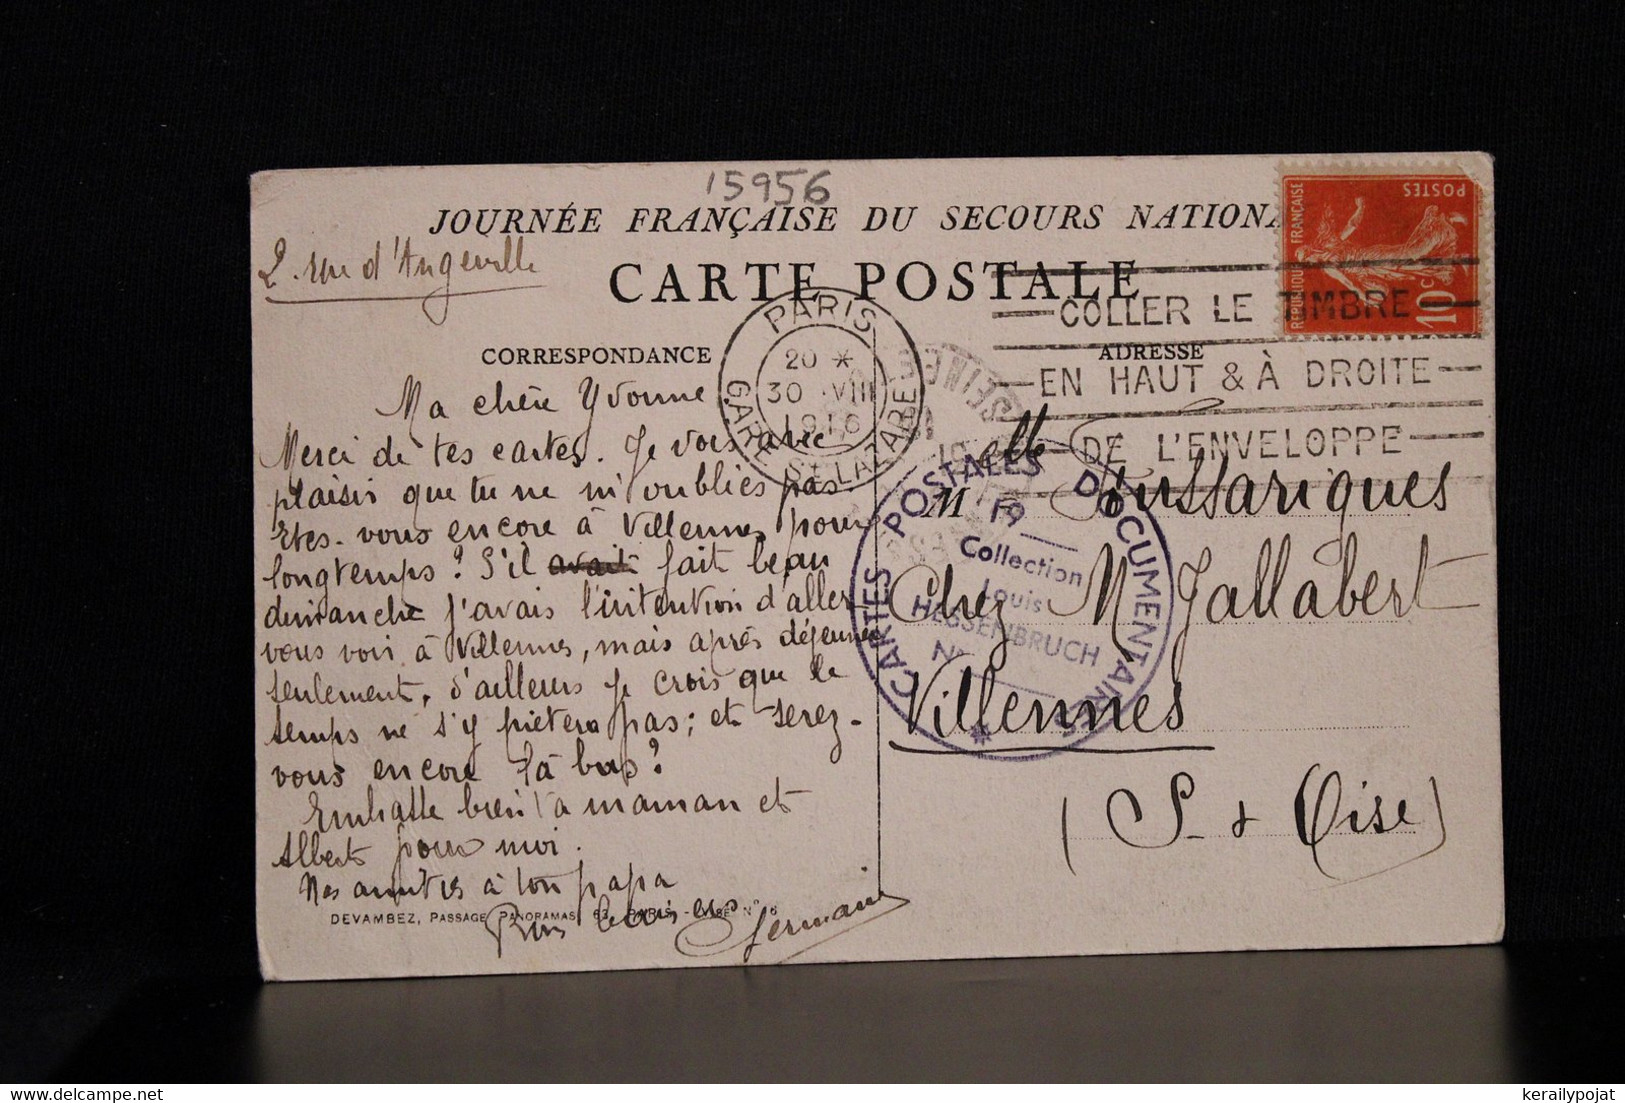 15956
JOURNÉE FRANÇAISE DU SECOURS NATIONA
2. rue d'Angeville
CARTE POSTALE
CORRESPONDANCE
Ma chère Yvonne
Merci de tes cartes. Je vois avec
plaisir que tu ne m'oublies pas.
Etes-vous encore à Villennes pour
longtemps? S'il avait fait beau
dimanche j'avais l'intention d'aller
vous voir à Villennes, mais après déjeuner
seulement. D'ailleurs je crois que le
temps ne s'y prêtera pas; et serez-
vous encore là bas?
Embrasse bien ta maman et
Albert pour moi.
Nos amitiés à ton papa
Germaine
DEVAMBEZ, PASSAGE PANORAMAS, 63, PARIS
PARIS
20 *
30 VIII
1916
GARE ST LAZARE
ADRESSE
COLLER LE TIMBRE
EN HAUT & À DROITE
DE L'ENVELOPPE
REPUBLIQUE FRANÇAISE
POSTES
10 C
CARTES POSTALES DOCUMENTAIRES
19
Collection
Louis
HESSENBRUCH
N°
Melle Foussariques
Chez M Jallabert
Villennes
(S. & Oise)
kerailypojat